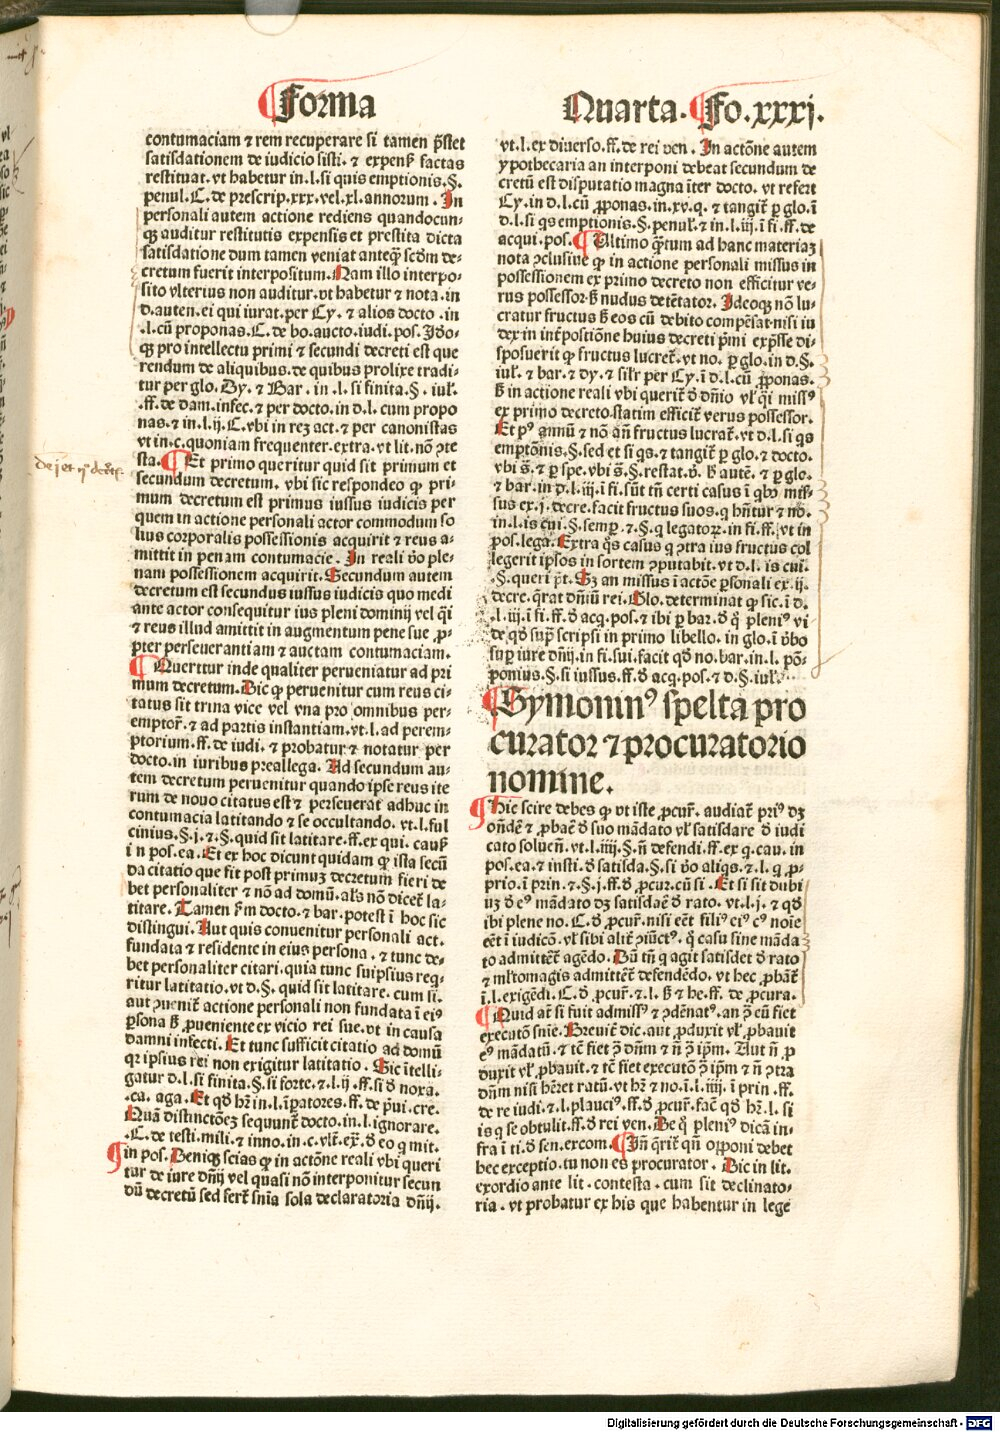 ¶Forma
Quarta. ¶Fo.xxxj.
contumaciam ⁊ rem recuperare si tamen p̃stet
satisdationem de iudicio sisti. ⁊ expenß factas
restituat. vt habetur in .l. si quis emptionis. §.
penul. C. de prescrip. xxx. vel .xl. annorum. In
personali autem actione rediens quandocun-
qꝫ auditur restitutis expensis et prestita dicta
satisdatione dum tamen veniat anteqꝫ scd̃m de-
cretum fuerit interpositum. Nam illo interpo-
sito vlterius non auditur. vt habetur ⁊ nota. in
d. auten. ei qui iurat. per Cy. ⁊ alios docto. in
.l. cū proponas. C. de bo. aucto. iudi. pos. Ido-
qꝫ pro intellectu primi ⁊ secundi decreti est que
rendum de aliquibus. de quibus prolixe tradi-
tur per glo. Dy. ⁊ Bar. in .l. si finita. §. iul'.
.ff. de dam. infec. ⁊ per docto. in d.l. cum propo
nas. ⁊ in .l. ij. C. vbi in reȝ act. ⁊ per canonistas
vt in .c. quoniam frequenter. extra. vt lit. nō ꝯte
sta. ¶Et primo queritur quid sit primum et
secundum decretum. vbi sic respondeo ꝙ pri-
mum decretum est primus iussus iudicis per
quem in actione personali actor commodum so
lius corporalis possessionis acquirit ⁊ reus a-
mittit in penam contumacie. In reali v̓o ple-
nam possessionem acquirit. Secundum autem
decretum est secundus iussus iudicis quo medi
ante actor consequitur ius pleni dominij vel q̄si
⁊ reus illud amittit in augmentum pene sue ꝓ-
pter perseuerantiam ⁊ auctam contumaciam.
¶Querttur inde qualiter perueniatur ad pri
mum decretum. Dic ꝙ peruenitur cum reus ci-
tatus sit trina vice vel vna pro omnibus per-
emptor̄. ⁊ ad partis instantiam. vt .l. ad perem-
ptorium. ff. de iudi. ⁊ probatur ⁊ notatur per
docto. in iuribus preallega. Ad secundum au-
tem decretum peruenitur quando ipse reus ite
rum de nouo citatus est ⁊ perseuerat adhuc in
contumacia latitando ⁊ se occultando. vt .l. ful
cinius. §. j. ⁊ .§. quid sit latitare. ff. ex qui. cauß
i n pos. ea. Et ex hoc dicunt quidam ꝙ ista secū
da citatio que fit post primuȝ decretum fieri de
bet personaliter ⁊ nō ad domū. al's nō dicet̄ la-
titare. Tamen ßm docto. ⁊ bar. potest ī hoc sic
distingui. Aut quis conuenitur personali act.
fundata ⁊ residente in eius persona. ⁊ tunc de-
bet personaliter citari. quia tunc suipsius req̄-
ritur latitatio. vt d. §. quid sit latitare. cum si.
aut ꝯuenit̄ actione personali non fundata ī eiꝰ
ꝑsona ß ꝓueniente ex vicio rei sue. vt in causa
damni infecti. Et tunc sufficit citatio ad domū
qꝛ ipsius rei non exigitur latitatio. Sic ītelli-
gatur d.l. si finita. §. si forte. ⁊ .l. ij. ff. si ð noxa.
.ca. aga. Et qð hr̄ in .l. īꝑatores. ff. de p̄ui. cre.
Quā distinctōeȝ sequunt̄ docto. in .l. ignorare.
.C. de testi. mili. ⁊ inno. in .c. vl̄t. ex̄. ð eo q̄ mit.
¶in pos. Deniqꝫ scias ꝙ in actōne reali vbi queri
tur de iure dn̄ij vel quasi nō interponitur secun
dū decretū sed fert̄ sn̄ia sola declaratoria dn̄ij.
vt .l. ex diuerso. ff. de rei ven. In actōne autem
ypothecaria an interponi debeat secundum de
cretū est disputatio magna īter docto. vt refert
Cy. in d.l. cū ꝓponas. in .xv. q. ⁊ tangit̄ ꝑ glo. ī
d.l. si qs emptionis. §. penul'. ⁊ in .l. iij. ī fi. ff. de
acqui. pos. ¶Ultimo q̄tum ad hanc materiaȝ
nota ꝯclusiue ꝙ in actione personali missus in
possessionem ex primo decreto non efficitur ve-
rus possessor. ß nudus detētator. Ideoqꝫ nō lu-
cratur fructus ß eos cū debito compēsat. nisi iu
dex in int̄positiōne huius decreti p̄mi exp̄sse di-
sposuerit ꝙ fructus lucret̄. vt no. ꝑ glo. in d.§.
iul'. ⁊ bar. ⁊ dy. ⁊ sil'r per Cy. ī d.l. cū ꝓponas.
ß in actione reali vbi querit̄ ð dn̄io vl' q̄si missꝰ
ex primo decreto. statim efficit̄ verus possessor.
Et pꝰ annū ⁊ nō an̄ fructus lucrat̄. vt d.l. si qs
emptōnis. §. sed et si qs. ⁊ tangit̄ ꝑ glo. ⁊ docto.
vbi s̄. ⁊ ꝑ spe. vbi s̄. §. restat. v̓. ß autē. ⁊ ꝑ glo.
⁊ bar. in d.l. iij. ī fi. sūt tn̄ certi casus ī qbꝰ mis-
sus ex .j. decre. facit fructus suos. q̄ hn̄tur ⁊ no.
in .l. is cui. §. semꝑ. ⁊ .§. q legatoꝝ. in fi. ff. vt in
pos. lega. Extra q̄s casus q̄ ꝯtra ius fructus col
legerit ipsos in sortem ꝯputabit. vt d.l. is cui.
.§. queri p̄t. Sȝ an missus ī actōe ꝑsonali ex .ij.
decre. q̄rat dn̄iū rei. Glo. determinat ꝙ sic. ī d.
.l. iij. ī fi. ff. ð acq. pos. ⁊ ibi ꝑ bar. ð q̊ pleniꝰ vi-
de qð sup̄ scripsi in primo libello. in glo. ī v̓bo
suꝑ iure dn̄ij. in fi. sui. facit qð no. bar. in .l. pō-
ponius. §. si iussus. ff. ð acq. pos. ⁊ d.§. iul'.
¶Symoninꝰ spelta pro
curator ⁊ procuratorio
nomine.
¶Hic scire debes ꝙ vt iste ꝓcur̄. audiat̄ priꝰ dȝ
on̄dē ⁊ ꝓbaē ð suo mādato vl' satisdare ð iudi
cato soluen̄. vt .l. iiij. §. n̄ defendi. ff. ex q. cau. in
pos. ea. ⁊ insti. ð satisda. §. si v̓o aliqs. ⁊ .l. q ꝓ-
prio. ī prin. ⁊ .§. j. ff. ð ꝓcur. cū si. Et si sit dubi
uȝ ð eꝰ mādato dȝ satisdaē ð rato. vt .l. j. ⁊ qð
ibi plene no. C. ð ꝓcur̄. nisi eēt filiꝰ eiꝰ cꝰ noīe
eēt ī iudicō. vl' sibi alit̄ ꝯiūctꝰ. q̊ casu sine māda
to admittēt̄ agēdo. Dū tn̄ q agit satisdet ð rato
⁊ ml'tomagis admittēt̄ defendēdo. vt hec ꝓbāt̄
ī .l. exigēdi. C. ð ꝓcur̄. ⁊ .l. ß ⁊ he. ff. de ꝓcura.
¶Quid at̄ si fuit admissꝰ ⁊ ꝯdēnatꝰ. an ꝯ̄ cū fiet
executō sn̄ie. Breuit̄ dic. aut ꝓduxit vl' ꝓbauit
eꝰ mādatū. ⁊ tē fiet ꝯ̄ dn̄m ⁊ n̄ ꝯ̄ ip̄m. Aut n̄ ꝓ
duxit vl' ꝓbauit. ⁊ tē fiet executō ꝯ̄ ip̄m ⁊ n̄ ꝯtra
dn̄m nisi hēret ratū. vt hr̄ ⁊ no. ī .l. iiij. ī prin. ff.
de re iudi. ⁊ .l. plauciꝰ. ff. ð ꝓcur̄. fac̄ qð hr̄. l. si
is q se obtulit. ff. ð rei ven. De q̊ pleniꝰ dicā in-
fra ī ti. ð sen. excom. ¶In̄ q̄rit̄ qn̄ oꝓponi debet
hec exceptio. tu non es procurator. Dic in lit.
exordio ante lit. contesta. cum sit declinato-
ria. vt probatur ex his que habentur in lege
Digitalisierung gefördert durch die Deutsche Forschungsgemeinschaft - DFG